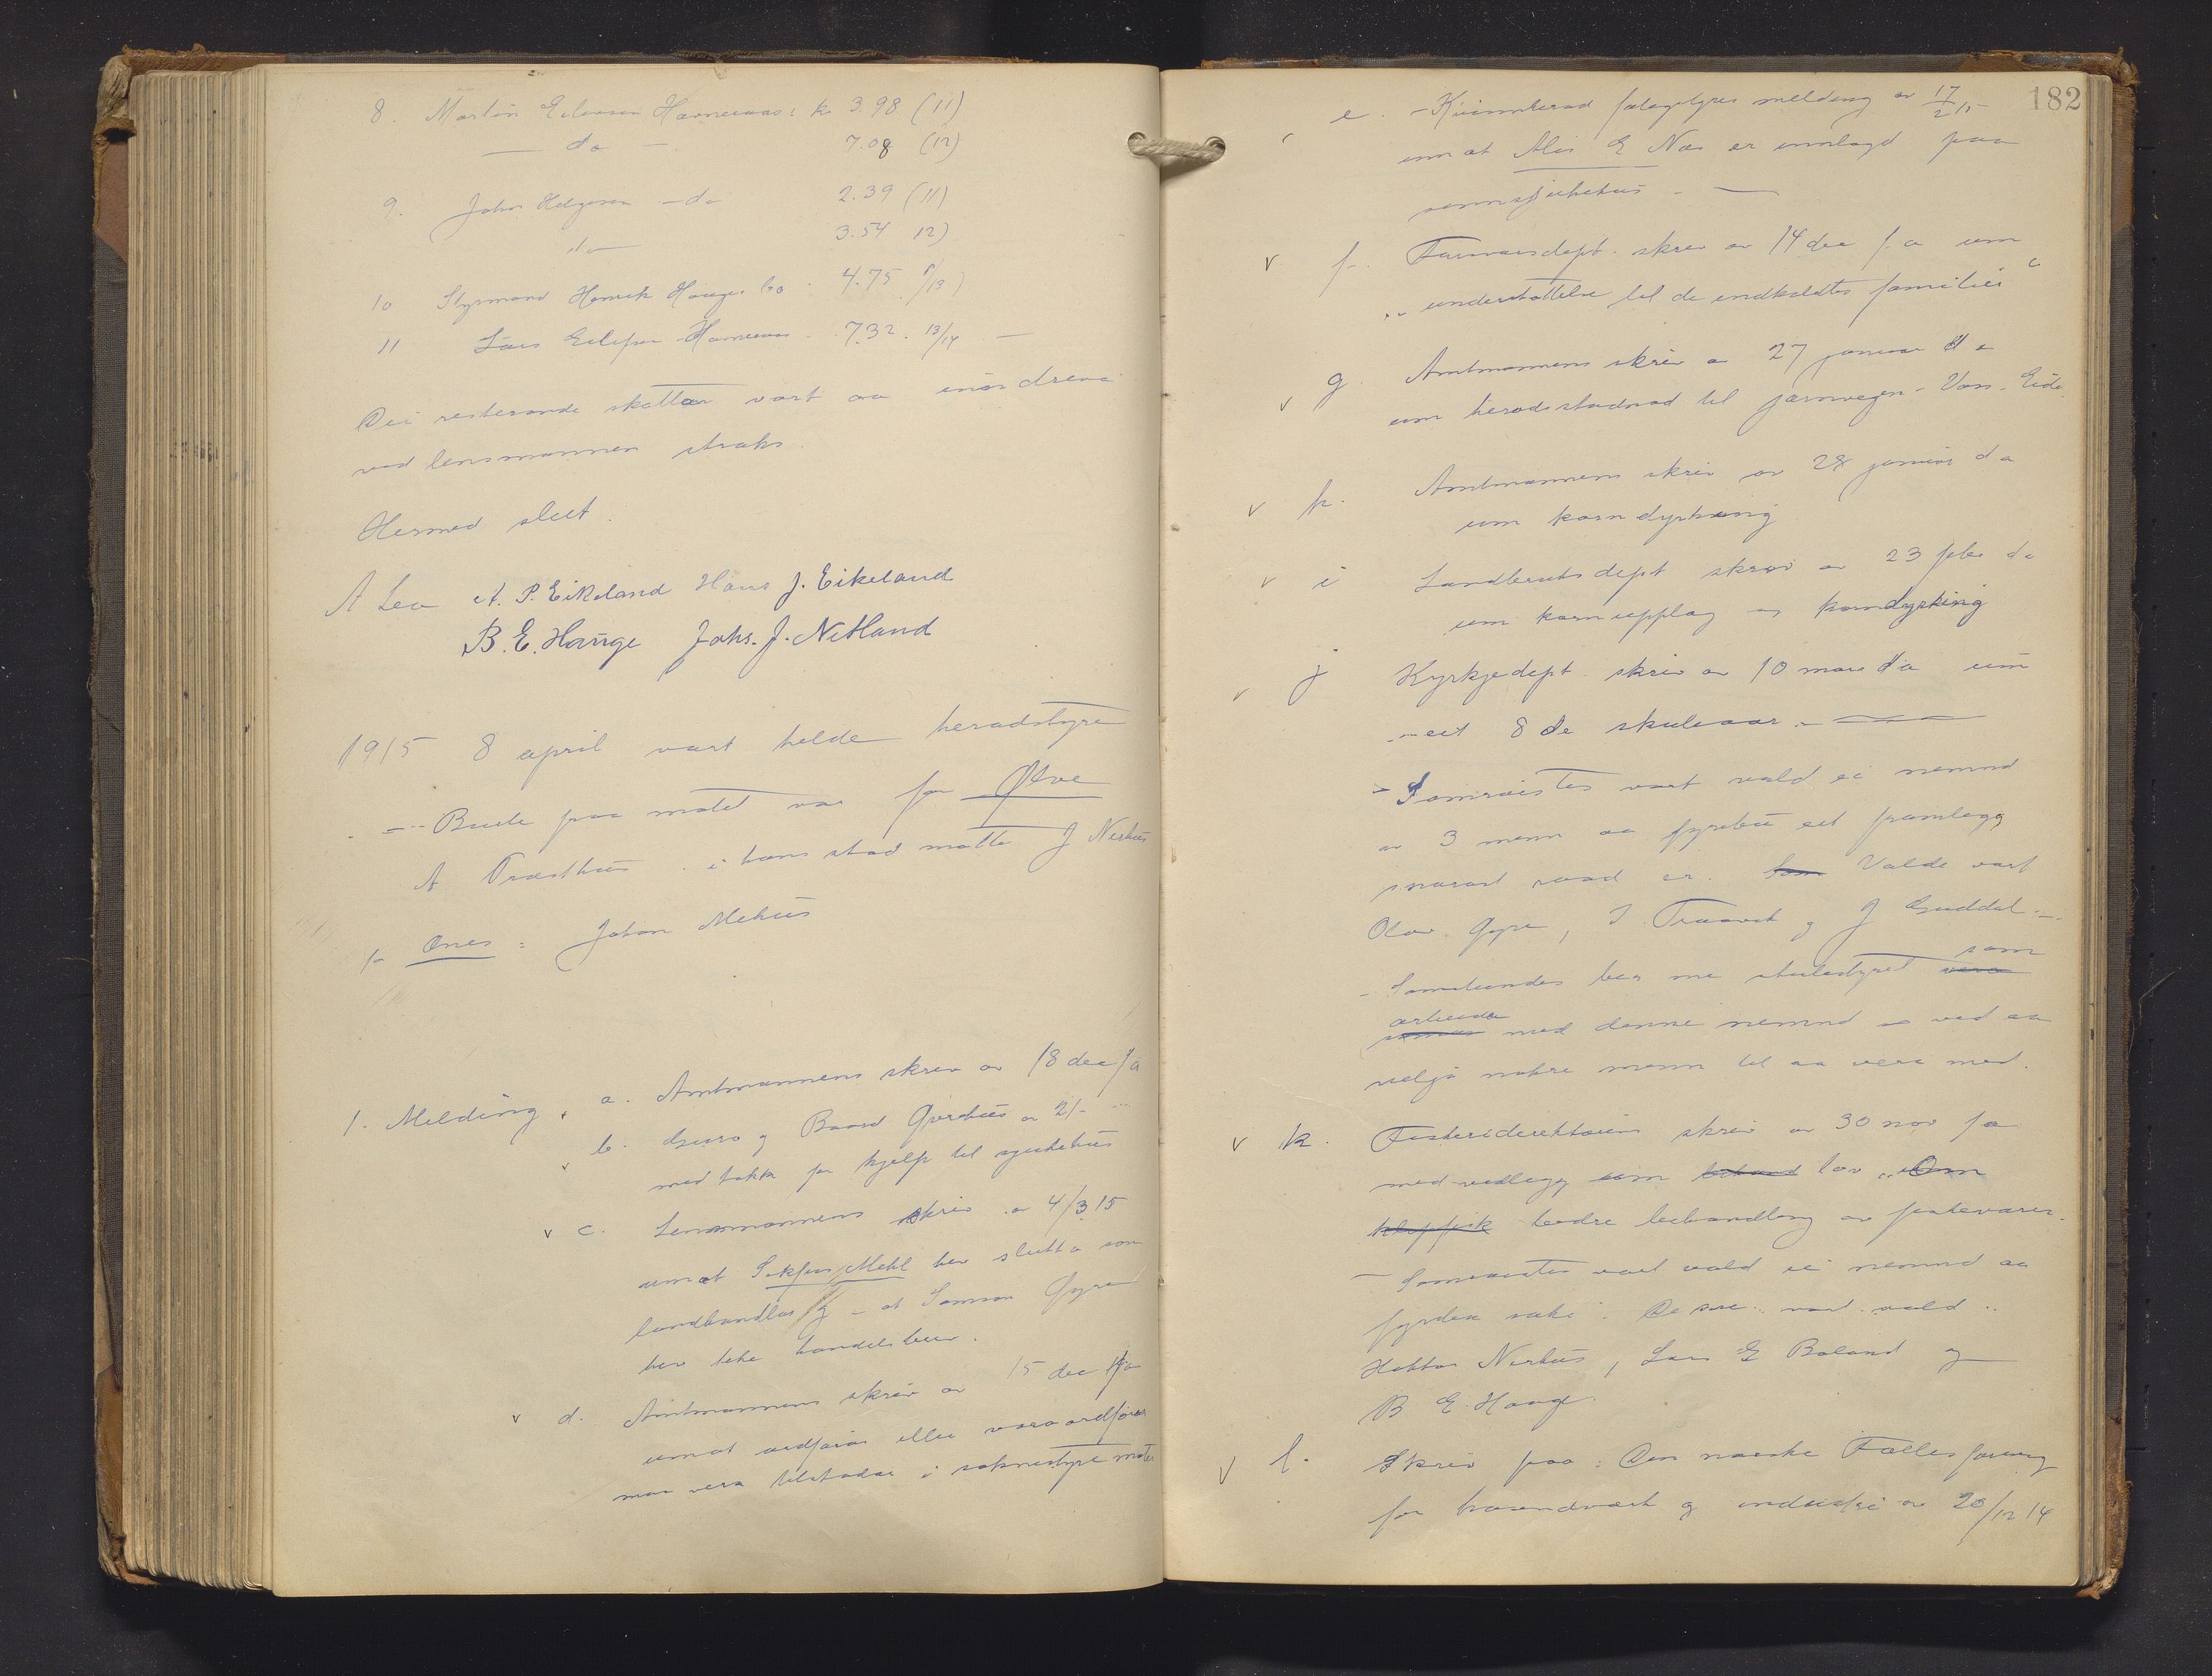 8. Martin Havneraas: k 3.98 (11)
— do — 7.08 (12)
9. Johs Helgesen — do 2.39 (11)
do 3.54 12)
10 Styrmand Henrik Hauge 4.75 /13)
11 Lars Havneraas 7.32. 13/14 —
Dei resterande skattar vart aa inndreva
ved lensmannen straks
Hermed slut.
A Lea A. P. Eikeland Hans J. Eikeland
B. E. Hauge Johs. J. Netland
1915 8 april vart helde heradstyre
Bude paa møtet var for Ølve
A Træsthus i hans stad møtte J Nerhus
for Ænes: Johan Mehus
1. Melding. a. Amtmannens skriv av 18 dec f a
b. Guro og Baard av 2/-
med takk for hjelp til sjukehus
v c. Lensmannens skriv av 4/3 15
um at Mehl hev slutta som
landhandlar og at Samson Gjøra
hev teke handelsbrev.
v d. Amtmannens skriv av 15 dec f a
um at ordførar eller varaordførar
maa vera tilstadar i soknestyremøte
182
e. Kvinnherad meldeng av 17/2 15
um at E Næs er innlagd paa
sinnsjukehus —
v f. Forsvarsdept. skriv av 14 dec f a um
„understøttelse til de indkaldtes familier“
v g. Amtmannens skriv av 27 januar d a
um heradsstudnad til jarnvegen Voss-Eide
v h. Amtmannens skriv av 28 januar d a
um korndyrkning
v i Landbruksdept skriv av 23 febr d a
um kornupplag og korndyrking
v j Kyrkjedept. skriv av 10 mars d a um
eit 8 de skuleaar. —
Samrøistes vart vald ei nemnd
av 3 menn aa fyrebu eit framlegg
snarast raad er. Valde vart
Olav Gjøra, J. Traavik og J Guddal
Somuleides bed me skulestyret som
arbeida med denne nemnd ved aa
velja nokre menn til aa vera med.
v k. Fiskeridirektørens skriv av 30 nov f a
med vedlegg um lov „Om
klipfisk bedre behandling av fiskevarer.
Samrøistes vart vald ei nemnd aa
fyrebu saki. Desse vart vald
Haktor Nerhus, Lars E Baland og
B E Hauge.
v l. Skriv fraa: Den norske Fællesforening
for haandverk og industri av 20/12 14